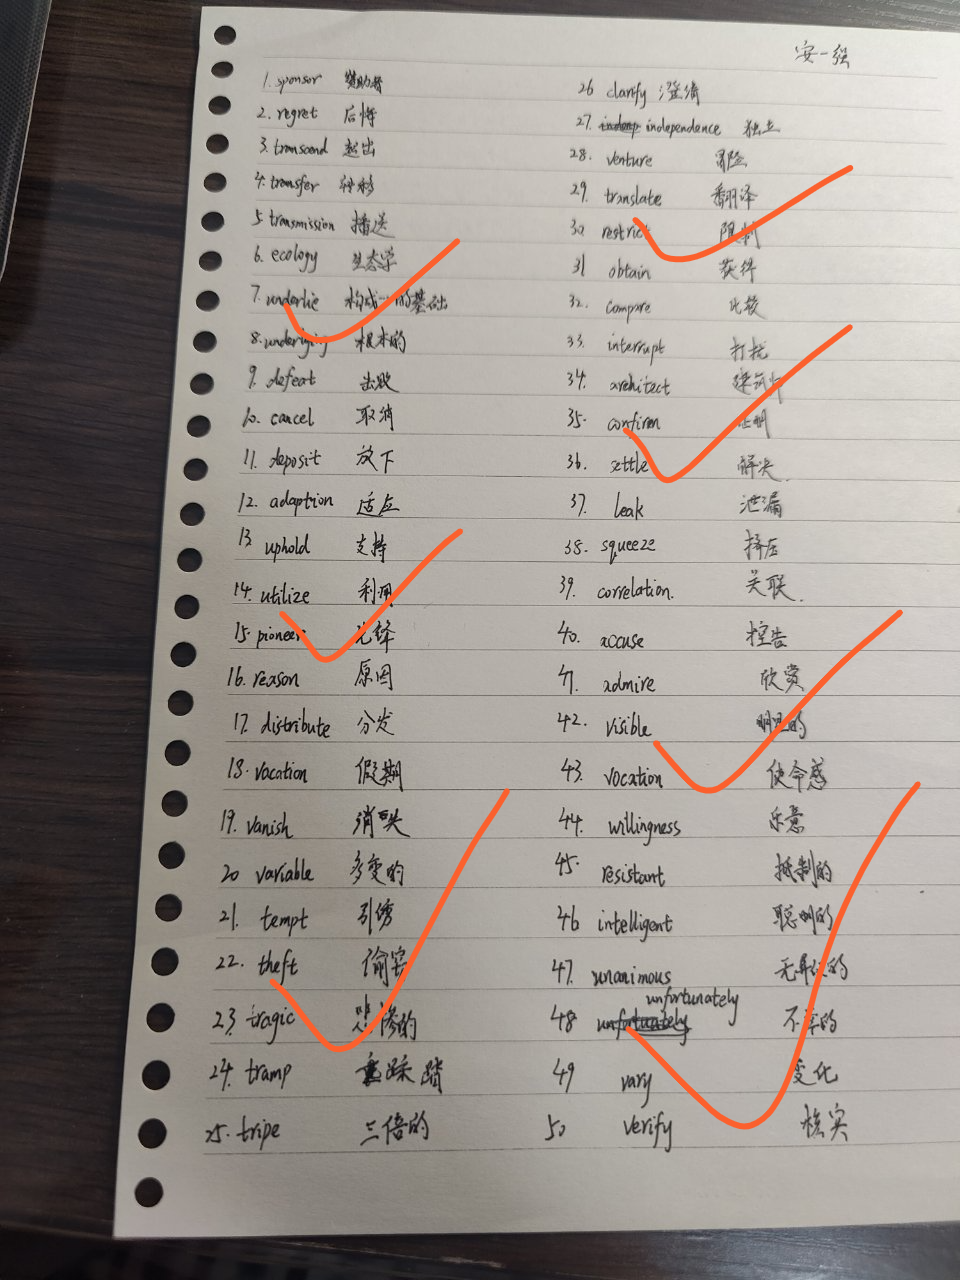 安一强
1. sponsor 赞助者
2. regret 后悔
3. transcend 超出
4. transfer 转移
5. transmission 播送
6. ecology 生态学
7. underlie 构成…的基础
8. underlying 根本的
9. defeat 击败
10. cancel 取消
11. deposit 放下
12. adaption 适应
13. uphold 支持
14. utilize 利用
15. pioneer 先锋
16. reason 原因
17. distribute 分发
18. vacation 假期
19. vanish 消失
20 variable 多变的
21. tempt 引诱
22. theft 偷窃
23. tragic 悲惨的
24. tramp 踩踏
25. tripe 三倍的
26 clarify 澄清
27. independence 独立
28. venture 冒险
29. translate 翻译
30. restrict 限制
31 obtain 获得
32. compare 比较
33. interrupt 打扰
34. architect 建筑师
35. confirm 证明
36. settle 解决
37. leak 泄漏
38. squeeze 挤压
39. correlation. 关联.
40. accuse 控告
41. admire 欣赏
42. visible 明显的
43. vocation 使命感
44. willingness 乐意
45. resistant 抵制的
46 intelligent 聪明的
47. unanimous 无异议的
48 unfortunately 不幸的
49 vary 变化
50 verify 核实